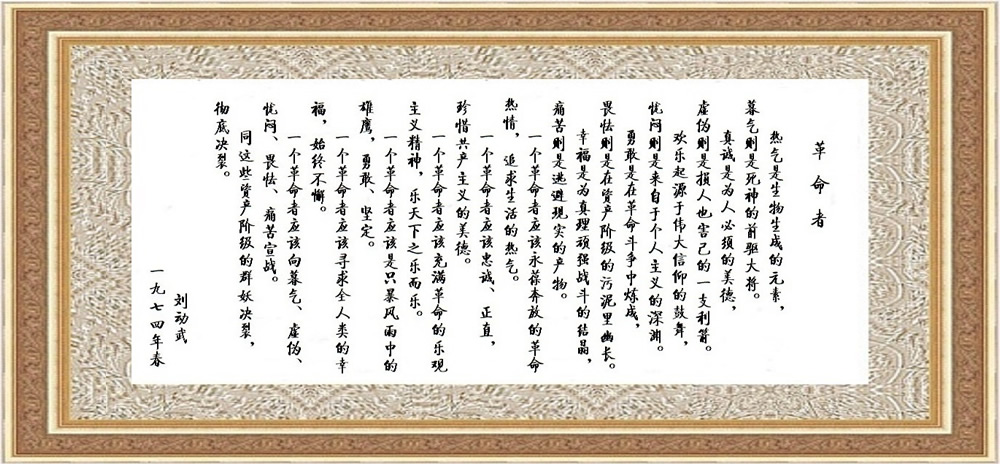 革命者
热气是生物生成的元素，
暮气则是死神的前驱大将。
真诚是为人必须的美德，
虚伪则是损人也害己的一支利箭。
欢乐起源于伟大信仰的鼓舞，
忧闷则是来自于个人主义的深渊。
勇敢是在革命斗争中炼成，
畏怯则是在资产阶级的污泥里幽长。
幸福是为真理顽强战斗的结晶，
痛苦则是逃避现实的产物。
一个革命者应该永葆奔放的革命
热情，追求生活的热气。
一个革命者应该忠诚、正直，
珍惜共产主义的美德。
一个革命者应该充满革命的乐观
主义精神，乐天下之乐而乐。
一个革命者应该是只暴风雨中的
雄鹰，勇敢、坚定。
一个革命者应该寻求全人类的幸
福，始终不懈。
一个革命者应该向暮气、虚伪、
忧闷、畏怯、痛苦宣战。
同这些资产阶级的群妖决裂，
彻底决裂。
刘动武
一九七四年春